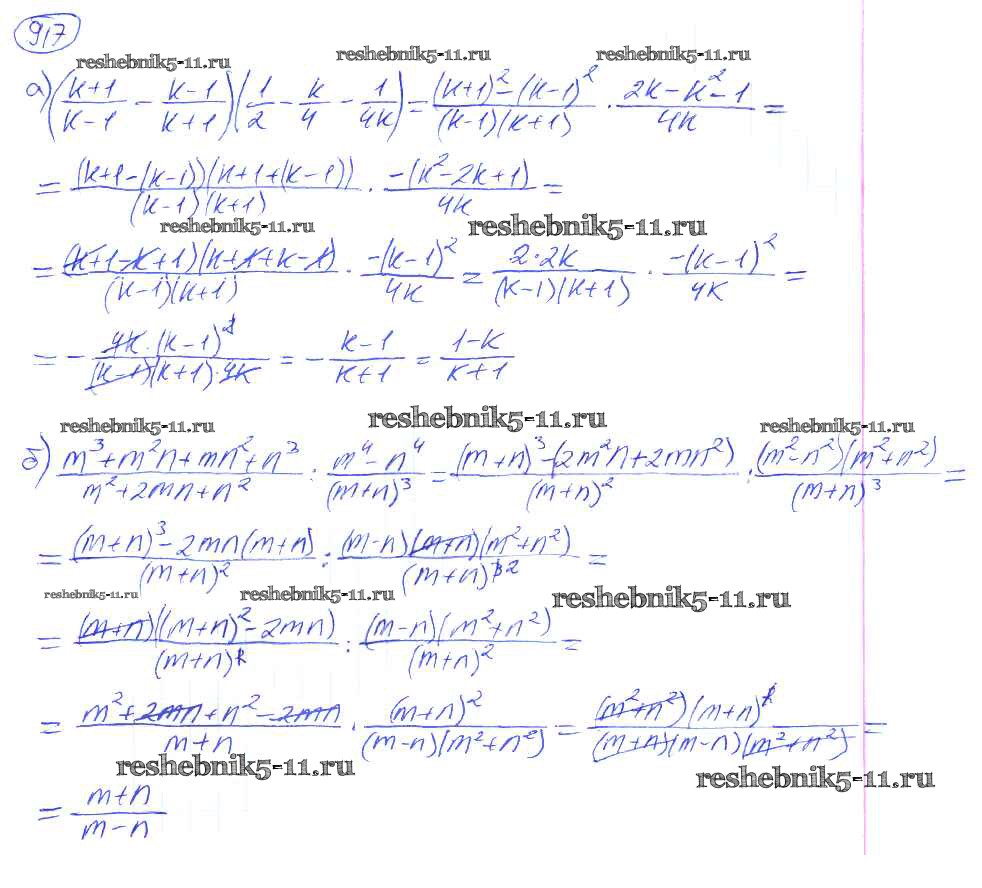 917
reshebnik5-11.ru reshebnik5-11.ru reshebnik5-11.ru
а) ((k+1)/(k-1) - (k-1)/(k+1)) (1/2 - k/4 - 1/4k) = ((k+1)² - (k-1)²)/((k-1)(k+1)) · (2k - k² - 1)/4k =
= ((k+1-(k-1))(k+1+(k-1)))/((k-1)(k+1)) · (-(k²-2k+1))/4k =
reshebnik5-11.ru reshebnik5-11.ru
= ((k+1-k+1)(k+1+k-1))/((k-1)(k+1)) · (-(k-1)²)/4k = (2·2k)/((k-1)(k+1)) · (-(k-1)²)/4k =
= - (4k·(k-1)²)/((k-1)(k+1)·4k) = - (k-1)/(k+1) = (1-k)/(k+1)
reshebnik5-11.ru reshebnik5-11.ru reshebnik5-11.ru
б) (m³+m²n+mn²+n³)/(m²+2mn+n²) : (m⁴-n⁴)/(m+n)³ = ((m+n)³-(2m²n+2mn²))/(m+n)² : ((m²-n²)(m²+n²))/(m+n)³ =
= ((m+n)³-2mn(m+n))/(m+n)² : ((m-n)(m+n)(m²+n²))/(m+n)³ ² =
reshebnik5-11.ru reshebnik5-11.ru reshebnik5-11.ru
= ((m+n)((m+n)²-2mn))/(m+n)² : ((m-n)(m²+n²))/(m+n)² =
= (m²+2mn+n²-2mn)/(m+n) · (m+n)²/((m-n)(m²+n²)) = ((m²+n²)(m+n)²)/((m+n)(m-n)(m²+n²)) =
reshebnik5-11.ru reshebnik5-11.ru
= (m+n)/(m-n)